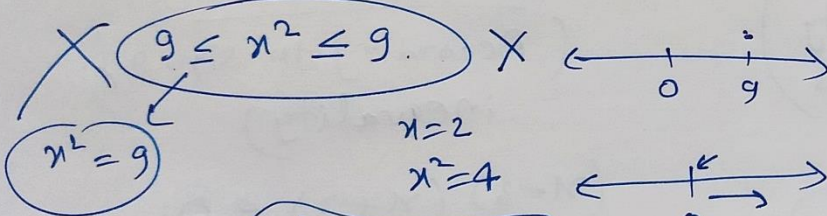 9 ≤ x² ≤ 9.
0 9
x² = 9
x=2
x²=4